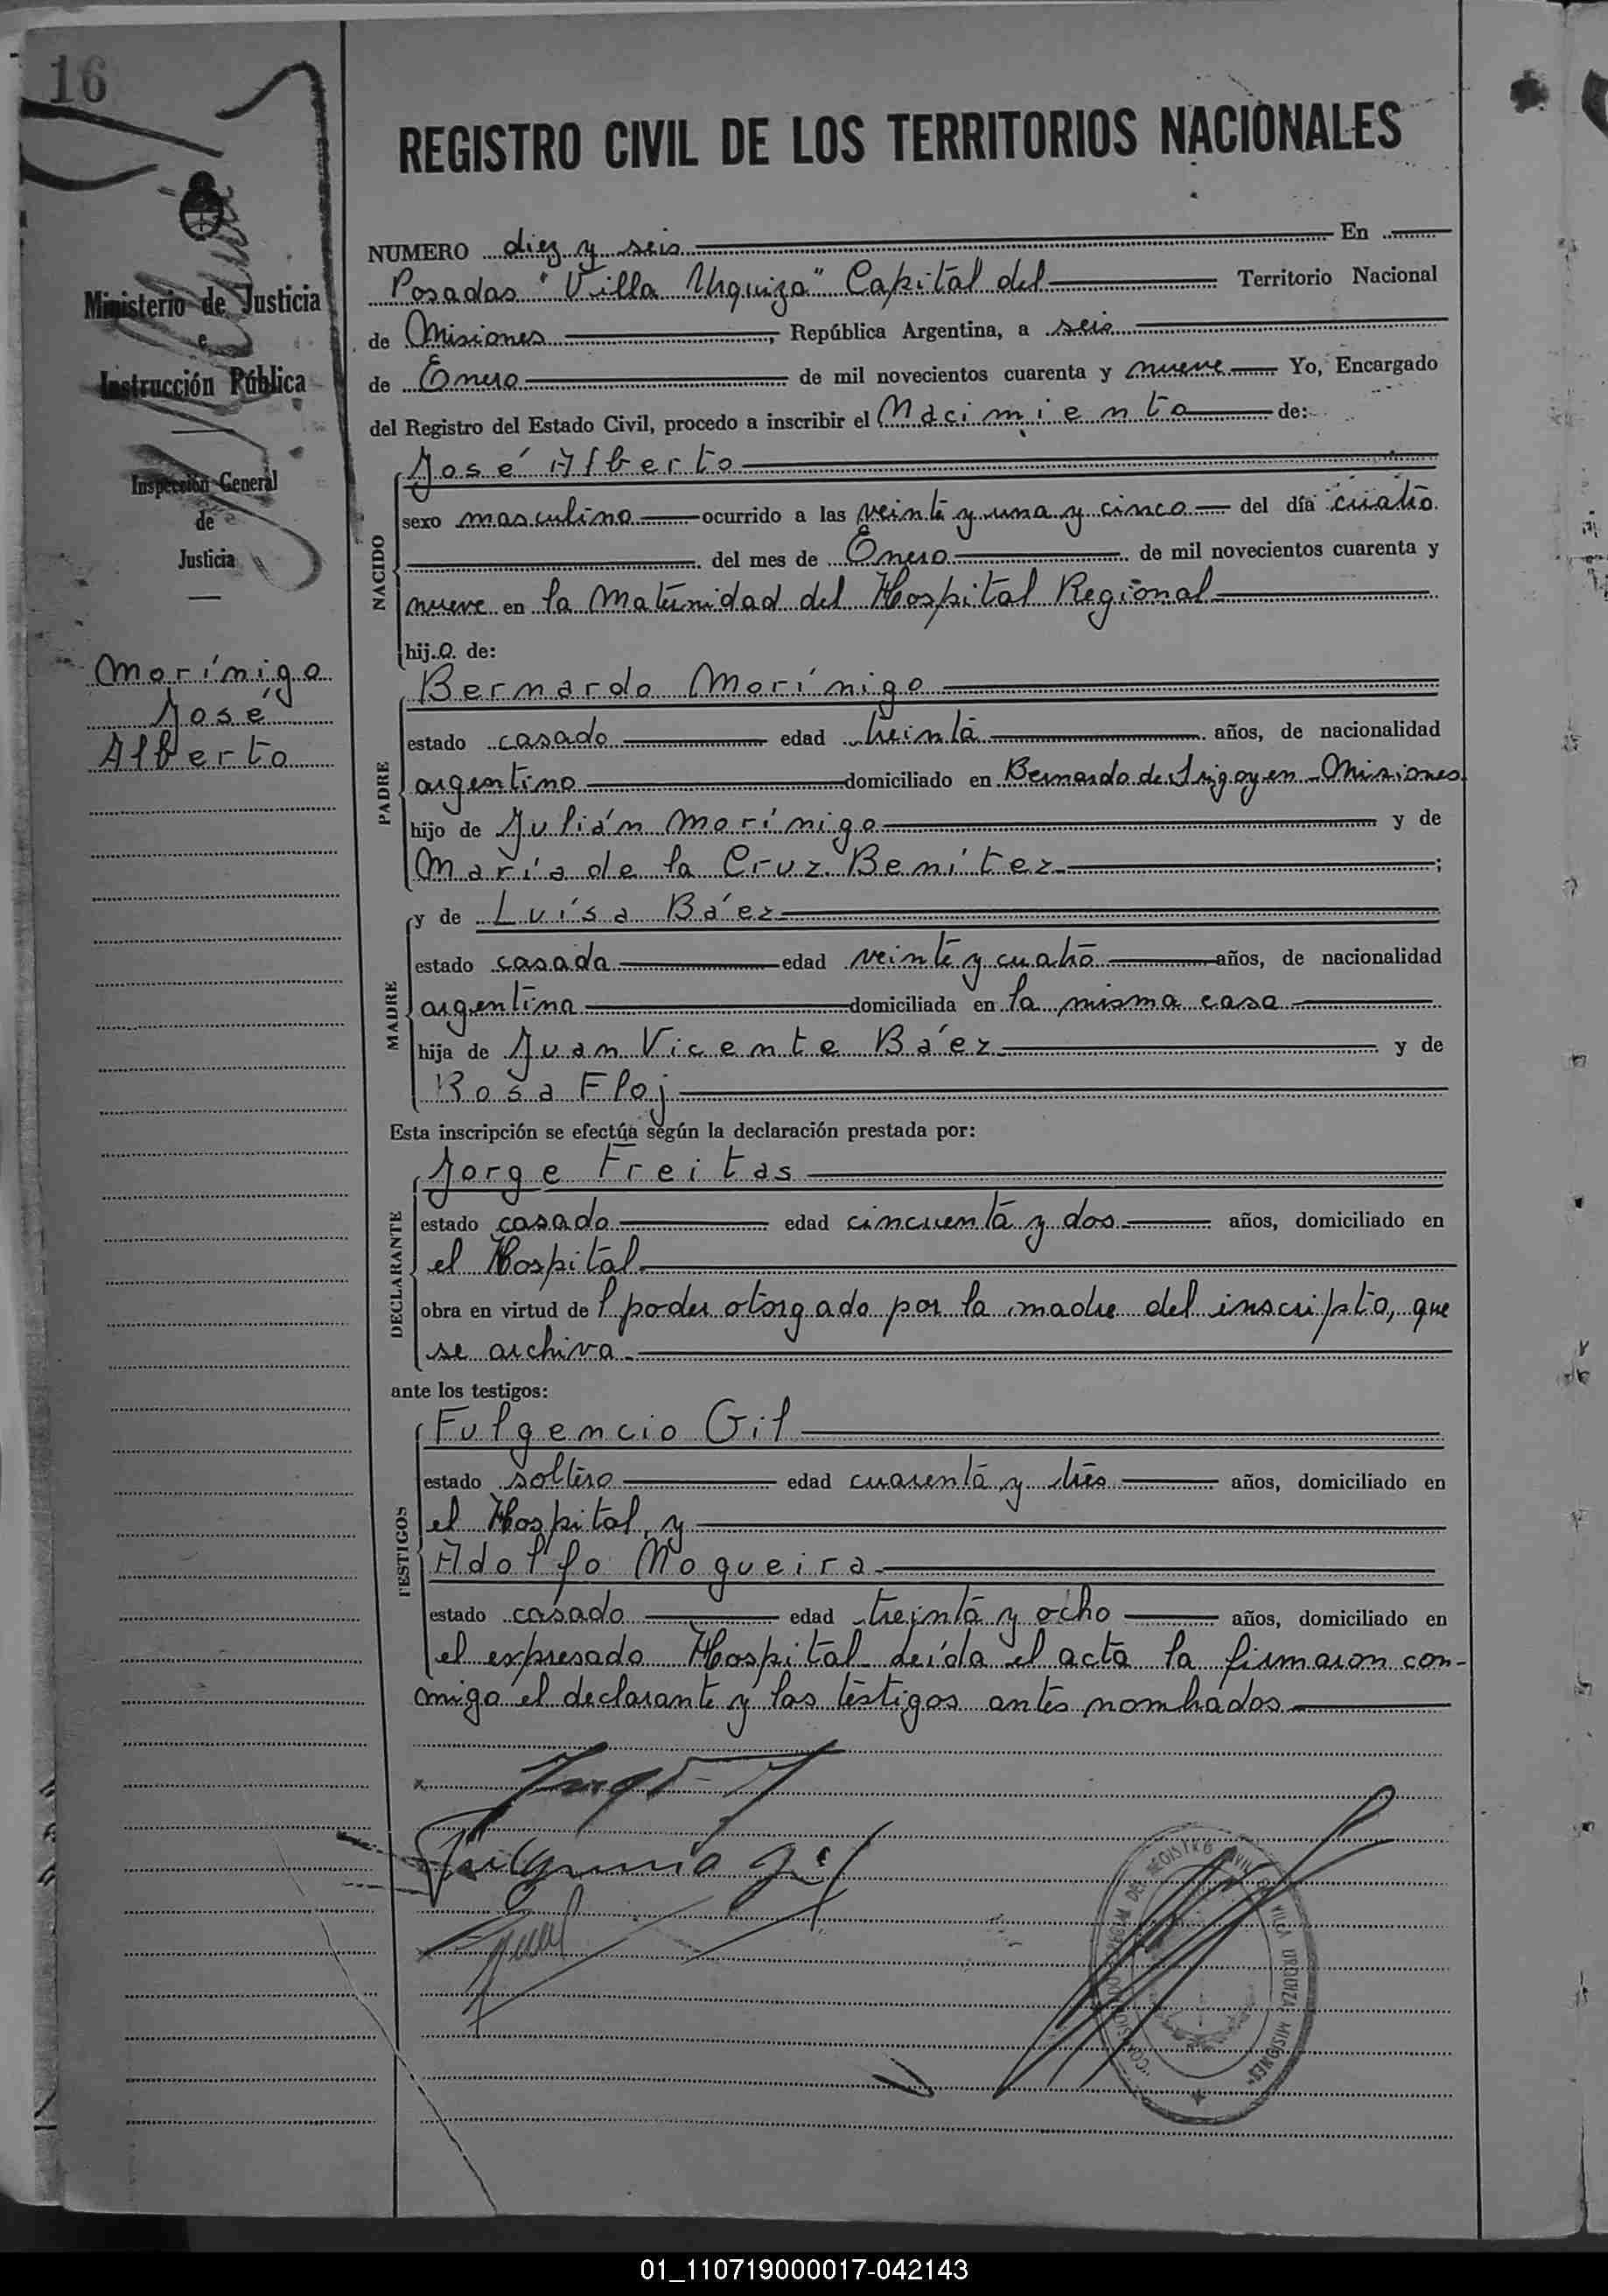 16
REGISTRO CIVIL DE LOS TERRITORIOS NACIONALES
Ministerio de Justicia
e
Instrucción Pública
Inspección General
de
Justicia
Morínigo
José
Alberto
NUMERO diez y seis En
Posadas "Villa Urquiza" Capital del Territorio Nacional
de Misiones, República Argentina, a seis
de Enero de mil novecientos cuarenta y nueve Yo, Encargado
del Registro del Estado Civil, procedo a inscribir el Nacimiento de:
NACIDO
José Alberto
sexo masculino ocurrido a las veinte y una y cinco del día cuatro
del mes de Enero de mil novecientos cuarenta y
nueve en la Maternidad del Hospital Regional
hij.o. de:
PADRE
Bernardo Morínigo
estado casado edad treinta años, de nacionalidad
argentino domiciliado en Bernardo de Irigoyen - Misiones
hijo de Julián Morínigo y de
María de la Cruz Benítez;
MADRE
y de Luísa Báez
estado casada edad veinte y cuatro años, de nacionalidad
argentina domiciliada en la misma casa
hija de Juan Vicente Báez y de
Rosa Floj
Esta inscripción se efectúa según la declaración prestada por:
DECLARANTE
Jorge Freitas
estado casado edad cincuenta y dos años, domiciliado en
el Hospital
obra en virtud de l poder otorgado por la madre del inscripto, que
se archiva.
ante los testigos:
TESTIGOS
Fulgencio Gil
estado soltero edad cuarenta y tres años, domiciliado en
el Hospital, y
Adolfo Nogueira
estado casado edad treinta y ocho años, domiciliado en
el expresado Hospital leída el acta la firmaron con-
migo el declarante y los testigos antes nombrados
Fulgencio Gil
DEL REGISTRO CIVIL VILLA URQUIZA MISIONES
01_110719000017-042143